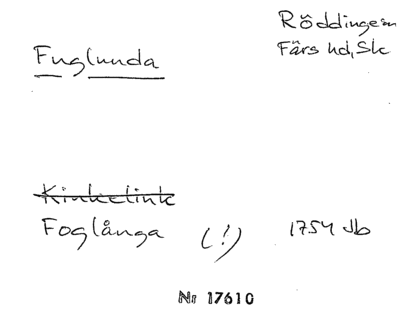 Röddinge sn
Färs hd, Sk
Fuglunda
Kinkelink
Foglånga (!) 1754 Jb
Nr 17610